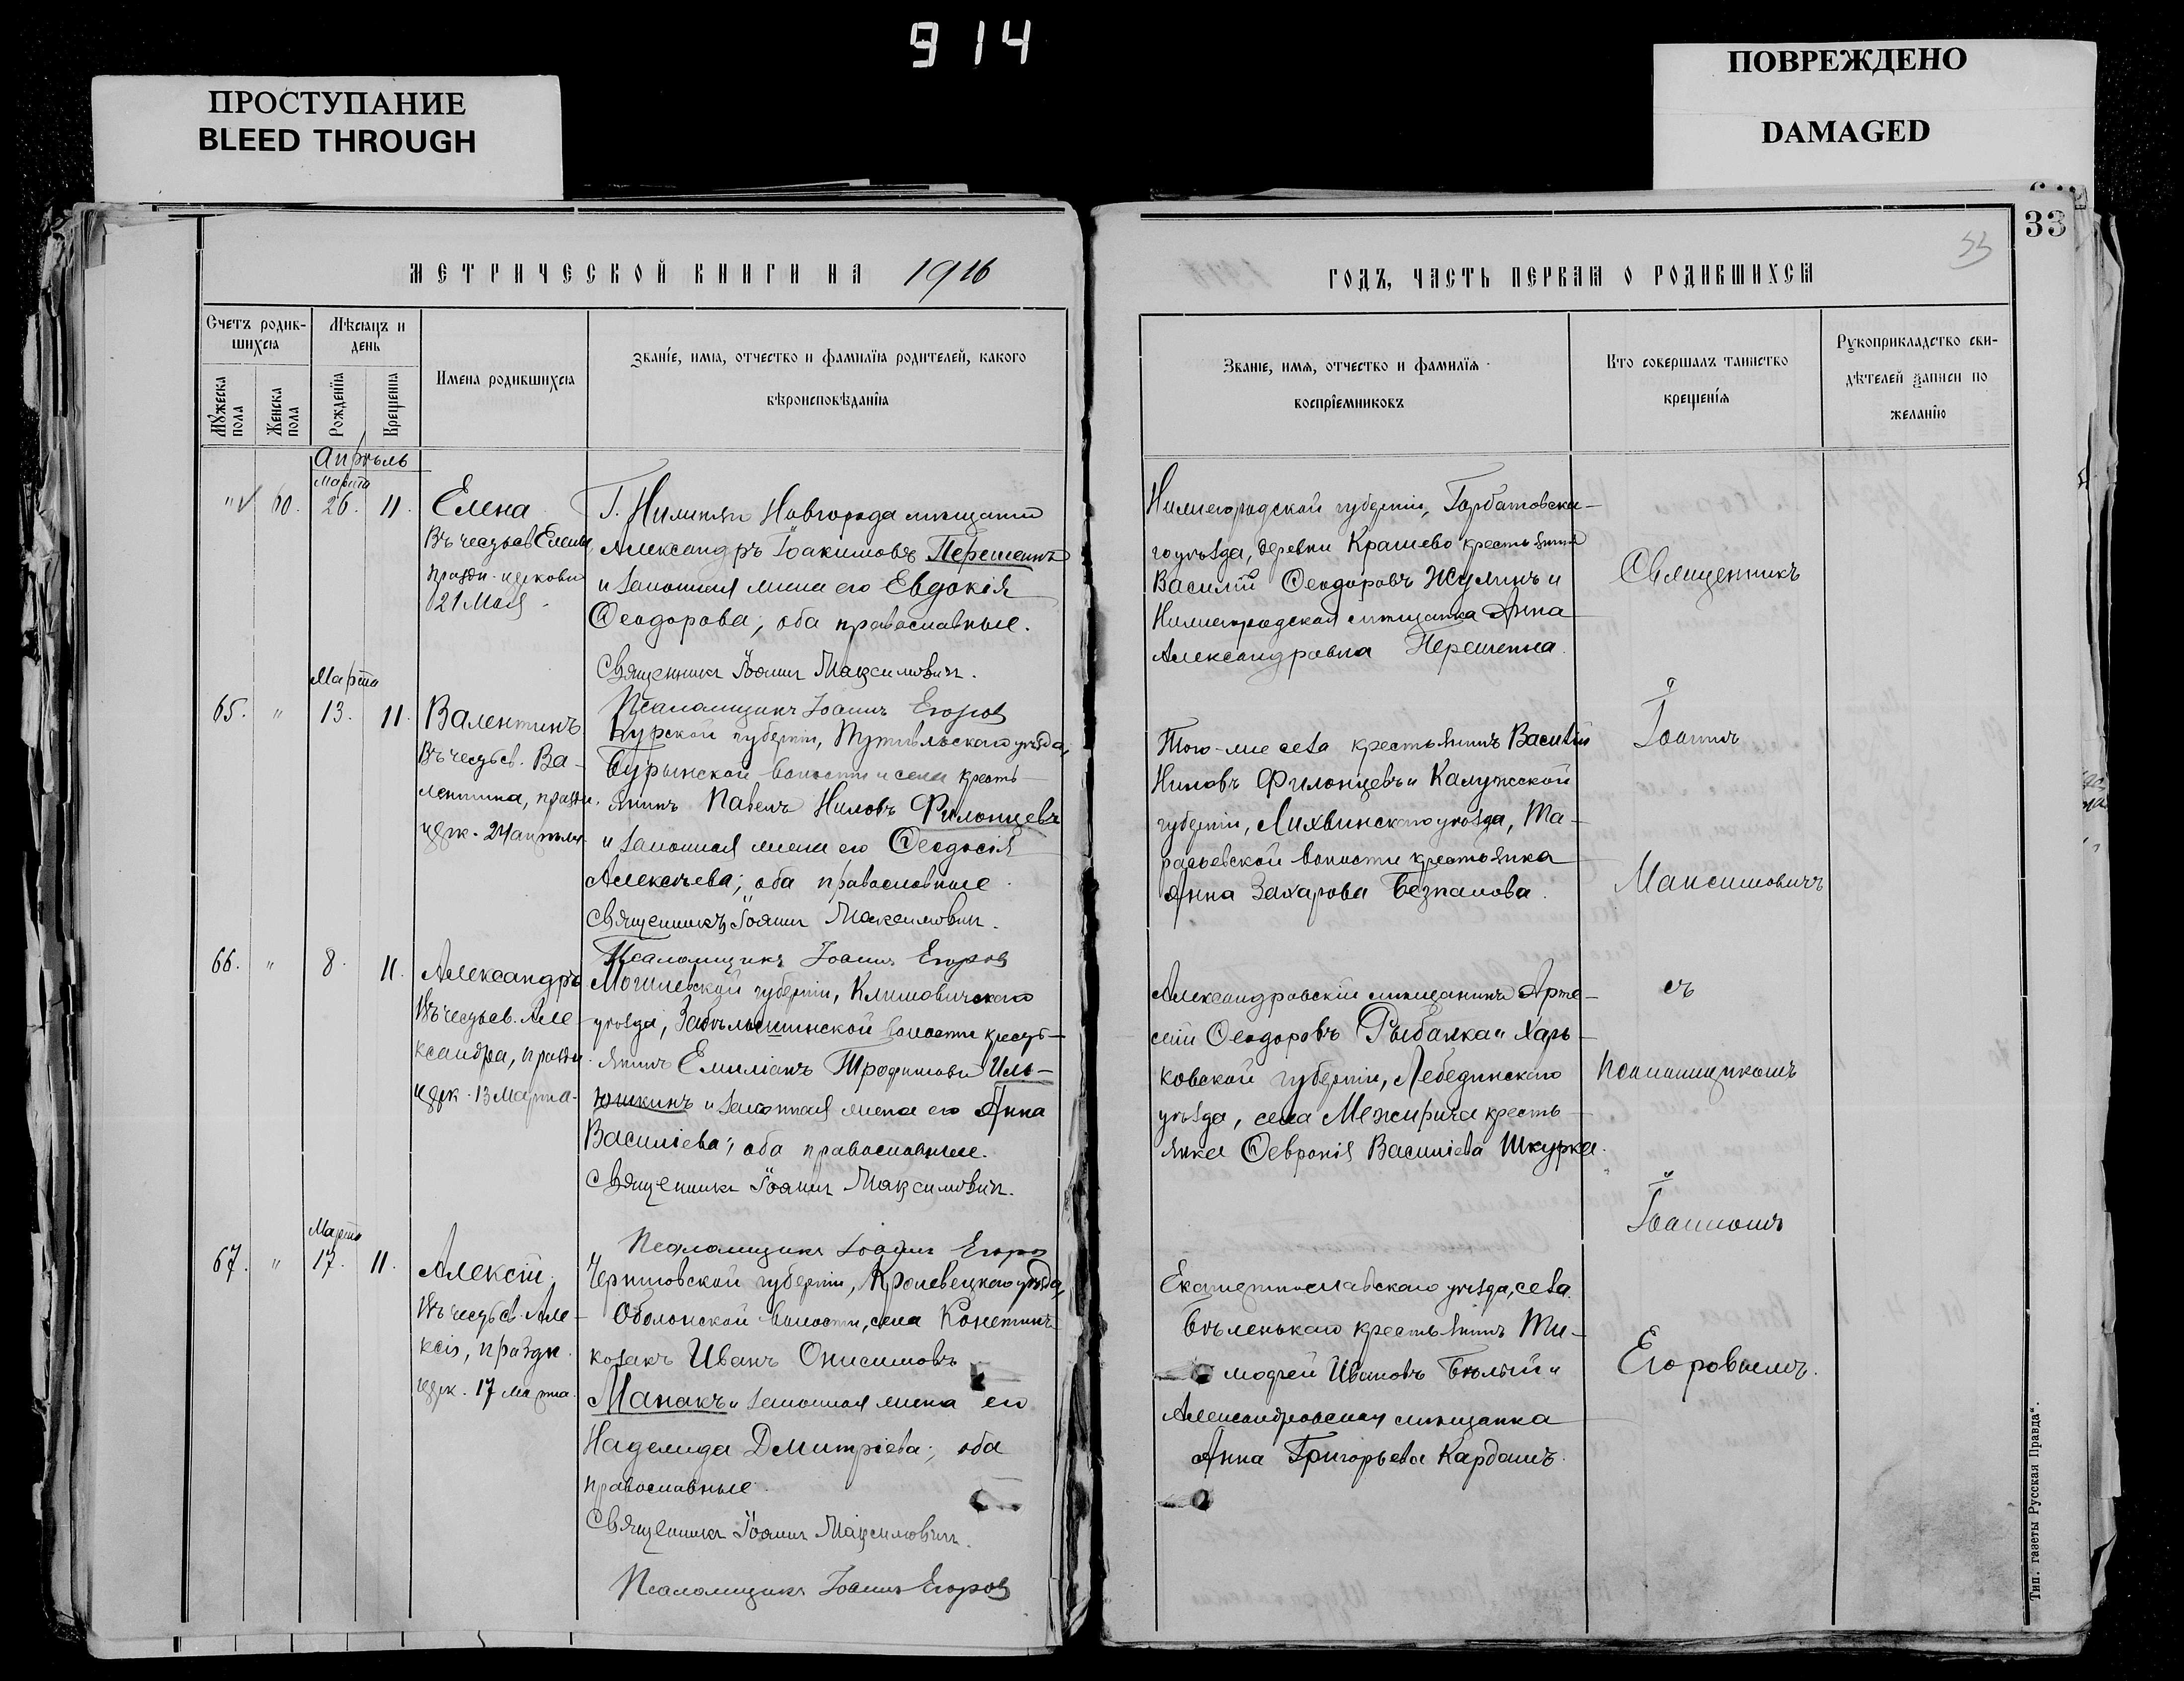 914
ПРОСТУПАНИЕ
BLEED THROUGH
ПОВРЕЖДЕНО
DAMAGED
МЕТРИЧЕСКОЙ КНИГИ НА 1916
Счетъ родив-
шихся
Мѣсяцъ и
день
Имена родившихся
Званіе, имя, отчество и фамилія родителей, какого
вѣроисповѣданія
Мужеска
пола
Женска
пола
Рожденія
Крещенія
Апрѣль
Марта
60. 26. 11. Елена
Въ честь св Елены
праздн. церковію
21 Мая
Г. Нижняго Новгорода мѣщанинъ
Александръ Іоакимовъ
и законная жена его Евдокія
Ѳеодорова, оба православные.
Священникъ Іоаннъ Максимовичъ.
Псаломщикъ Іоаннъ Егоровъ
Марта
65. " 13. 11. Валентинъ
Въ честь св. Ва-
лентина, праздн.
церк. 24 апрѣля
Курской губерніи, Путивльскаго уѣзда,
Бурынской волости и села кресть-
янинъ Павелъ Ниловъ Филонцевъ
и законная жена его Ѳеодосія
Алексѣева; оба православные.
Священникъ Іоаннъ Максимовичъ.
Псаломщикъ Іоаннъ Егоровъ
66. " 8. 11. Александръ
Въ честь св. Але-
ксандра, праздн.
церк. 13 Марта.
Могилевской губерніи, Климовичскаго
уѣзда, волости кресть-
янинъ Емиліанъ Трофимовъ Иль-
юшкинъ и законная жена его Анна
Василіева; оба православные.
Священникъ Іоаннъ Максимовичъ.
Псаломщикъ Іоаннъ Егоровъ
Марта
67. " 17. 11. Алексій,
Въ честь св. Але-
ксія, праздн.
церк. 17 марта.
Черниговской губерніи, Кролевецкаго уѣзда,
Оболонской волости, села
козакъ Иванъ Онисимовъ
Манакъ и законная жена его
Надежда Димитріева; оба
православные.
Священникъ Іоаннъ Максимовичъ.
Псаломщикъ Іоаннъ Егоровъ
33
53
ГОДЪ, ЧАСТЬ ПЕРВАЯ О РОДИВШИХСЯ
Званіе, имя, отчество и фамилія
воспріемниковъ
Кто совершалъ таинство
крещенія
Рукоприкладство сви-
дѣтелей записи по
желанію
Нижегородской губерніи, Горбатовска-
го уѣзда, деревни Крашево крестьянинъ
Василій Ѳеодоровъ Жулинъ и
Нижегородская мѣщанка Анна
Александровна
Того-же села крестьянинъ Василій
Ниловъ Филонцевъ и Калужской
губерніи, Лихвинскаго уѣзда, Та-
расьевской волости крестьянка
Анна Захарова Безпалова.
Александровскій мѣщанинъ Арте-
сій Ѳеодоровъ Рыбалка и Харь-
ковской губерніи, Лебединскаго
уѣзда, села Межирича кресть-
янка Ѳевронія Василіева Шкурка.
Екатеринославскаго уѣзда, села
Бѣленькаго крестьянинъ Ти-
моѳей Ивановъ Бѣлый и
Александровская мѣщанка
Анна Григорьева Кардашъ.
Священникъ
Іоаннъ
Максимовичъ
съ
псаломщикомъ
Іоанномъ
Егоровымъ.
Тип. газеты Русская Правда“.